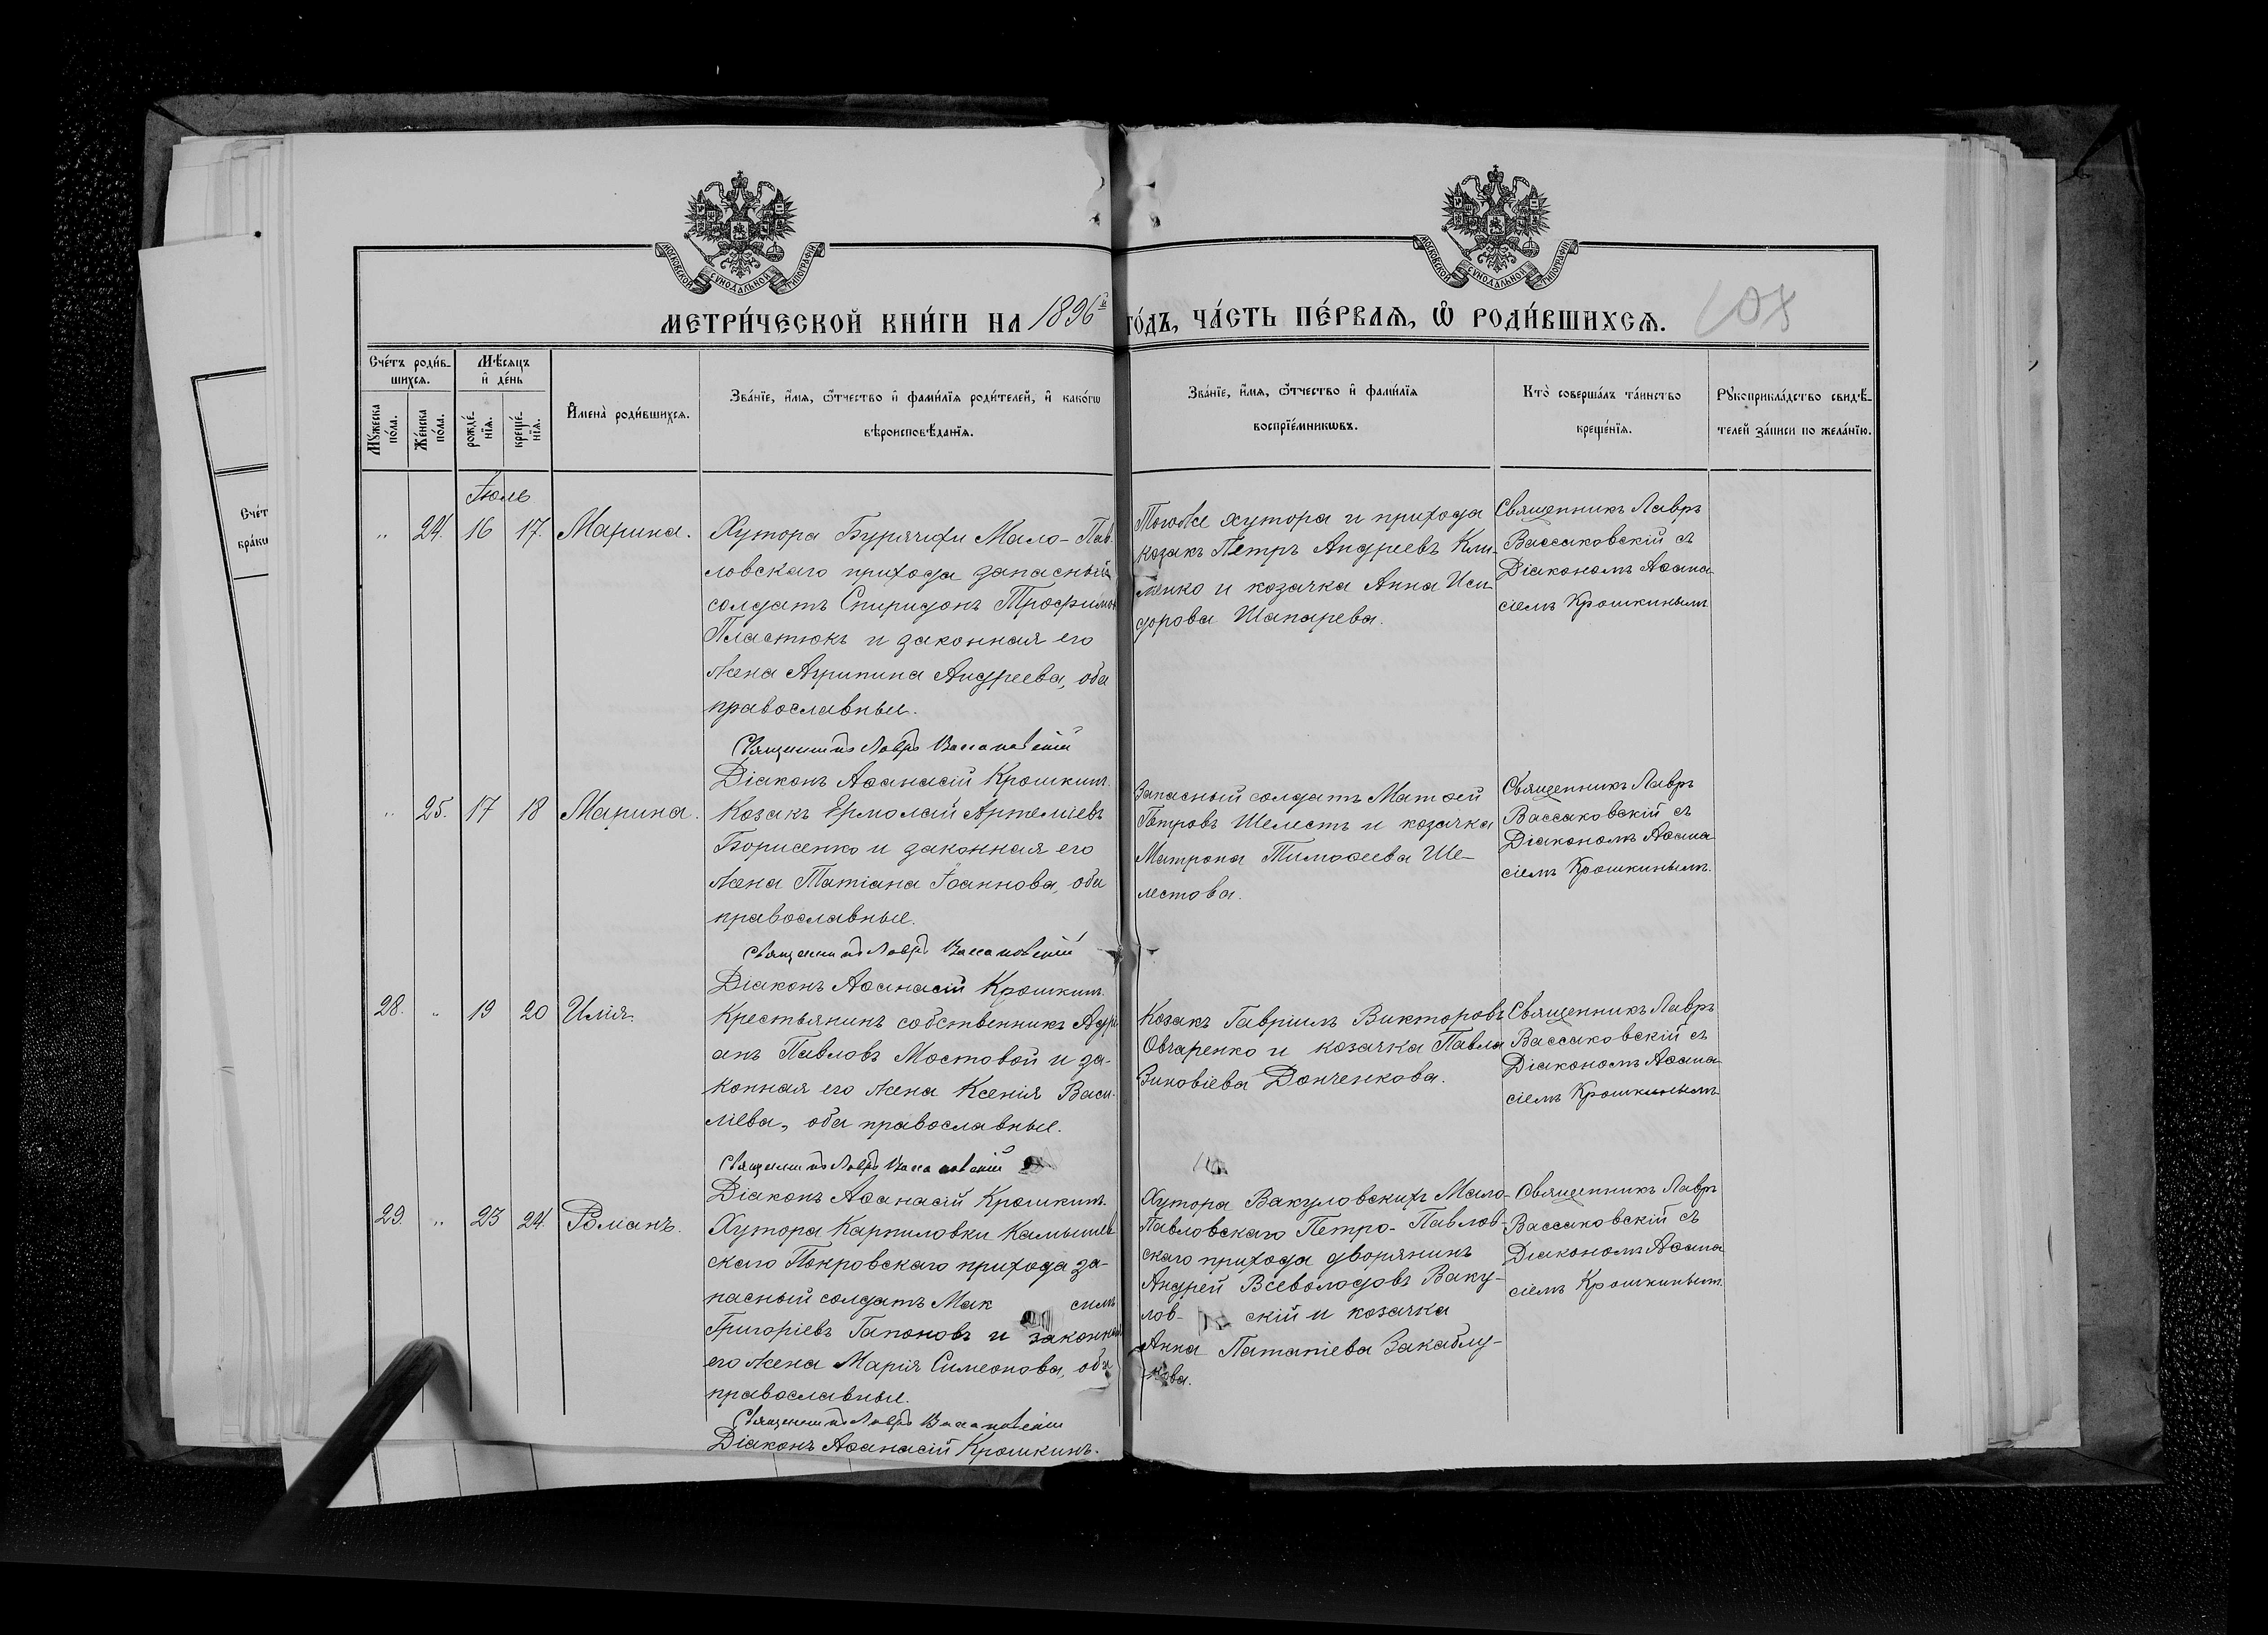 МОСКОВСКОЙ СѴНОДАЛЬНОЙ ТИПОГРАФІИ
МОСКОВСКОЙ СѴНОДАЛЬНОЙ ТИПОГРАФІИ
МЕТРИ́ЧЕСКОЙ КНИ́ГИ НА 1896й ГО́ДЪ, ЧА́СТЬ ПЕ́РВАѦ, Ѡ҆ РОДИ́ВШИХСѦ.
108
Сче́тъ роди́в-
шихсѧ.
Мꙋ́жеска
по́ла.
Же́нска
по́ла.
Мѣ́сѧцъ
и҆ де́нь
рожде́-
нїѧ.
креще́-
нїѧ.
И҆мена̀ роди́вшихсѧ.
Зва́нїе, и҆́мѧ, ѻ҆́тчество и҆ фамі́лїѧ роди́телей, и҆ како́гѡ
вѣроисповѣ́данїѧ.
Зва́нїе, и҆́мѧ, ѻ҆́тчество и҆ фамі́лїѧ
воспрїе́мникѡвъ.
Кто̀ соверша́лъ та́инство
креще́нїѧ.
Рꙋкоприкла́дство свидѣ́-
телей за́писи по жела́нїю.
Сче́т
бра́ки
Іюль
„ 24. 16 17. Марина.
Хутора Бурячихи Мало-Пав-
ловскаго прихода запасный
солдатъ Спиридонъ Трофимовъ
Пластюкъ и законная его
жена Агрипина Андреева, оба
православные.
Священникъ Лавръ Вассаковскій
Діаконъ Аѳанасій Крошкинъ.
Тогоже хутора и прихода
козакъ Петръ Андреевъ Кли-
менко и козачка Анна Иси-
дорова Шапарева.
Священникъ Лавръ
Вассаковскій съ
Діакономъ Аѳана-
сіемъ Крошкинымъ
„ 25. 17 18 Марина.
Козакъ Ермолай Артеміевъ
Борисенко и законная его
жена Татіана Іоаннова, оба
православные.
Священникъ Лавръ Вассаковскій
Діаконъ Аѳанасій Крошкинъ.
Запасный солдатъ Матѳей
Петровъ Шелестъ и козачка
Матрона Тимоѳеева Ше-
лестова.
Священникъ Лавръ
Вассаковскій съ
Діакономъ Аѳана-
сіемъ Крошкинымъ.
28. „ 19 20 Илія.
Крестьянинъ собственникъ Адрі-
анъ Павловъ Мостовой и за-
конная его жена Ксенія Васи-
ліева, оба православные.
Священникъ Лавръ Вассаковскій
Діаконъ Аѳанасій Крошкинъ.
Козакъ Гавріилъ Викторовъ
Овчаренко и козачка Павла
Зиновіева Донченкова.
Священникъ Лавръ
Вассаковскій съ
Діакономъ Аѳана-
сіемъ Крошкинымъ
29. „ 23 24. Романъ.
Хутора Карпиловки Камышев-
скаго Покровскаго прихода за-
пасный солдатъ Мак симъ
Григоріевъ Гапоновъ и законная
его жена Марія Симеонова, оба
православные.
Священникъ Лавръ Вассаковскій
Діаконъ Аѳанасій Крошкинъ.
Хутора Вакуловскихъ Мало-
Павловскаго Петро-Павлов-
скаго прихода дворянинъ
Андрей Всеволодовъ Ваку-
лов- скій и козачка
Анна Патапіева Закаблу-
кова.
Священникъ Лавръ
Вассаковскій съ
Діакономъ Аѳана
сіемъ Крошкинымъ